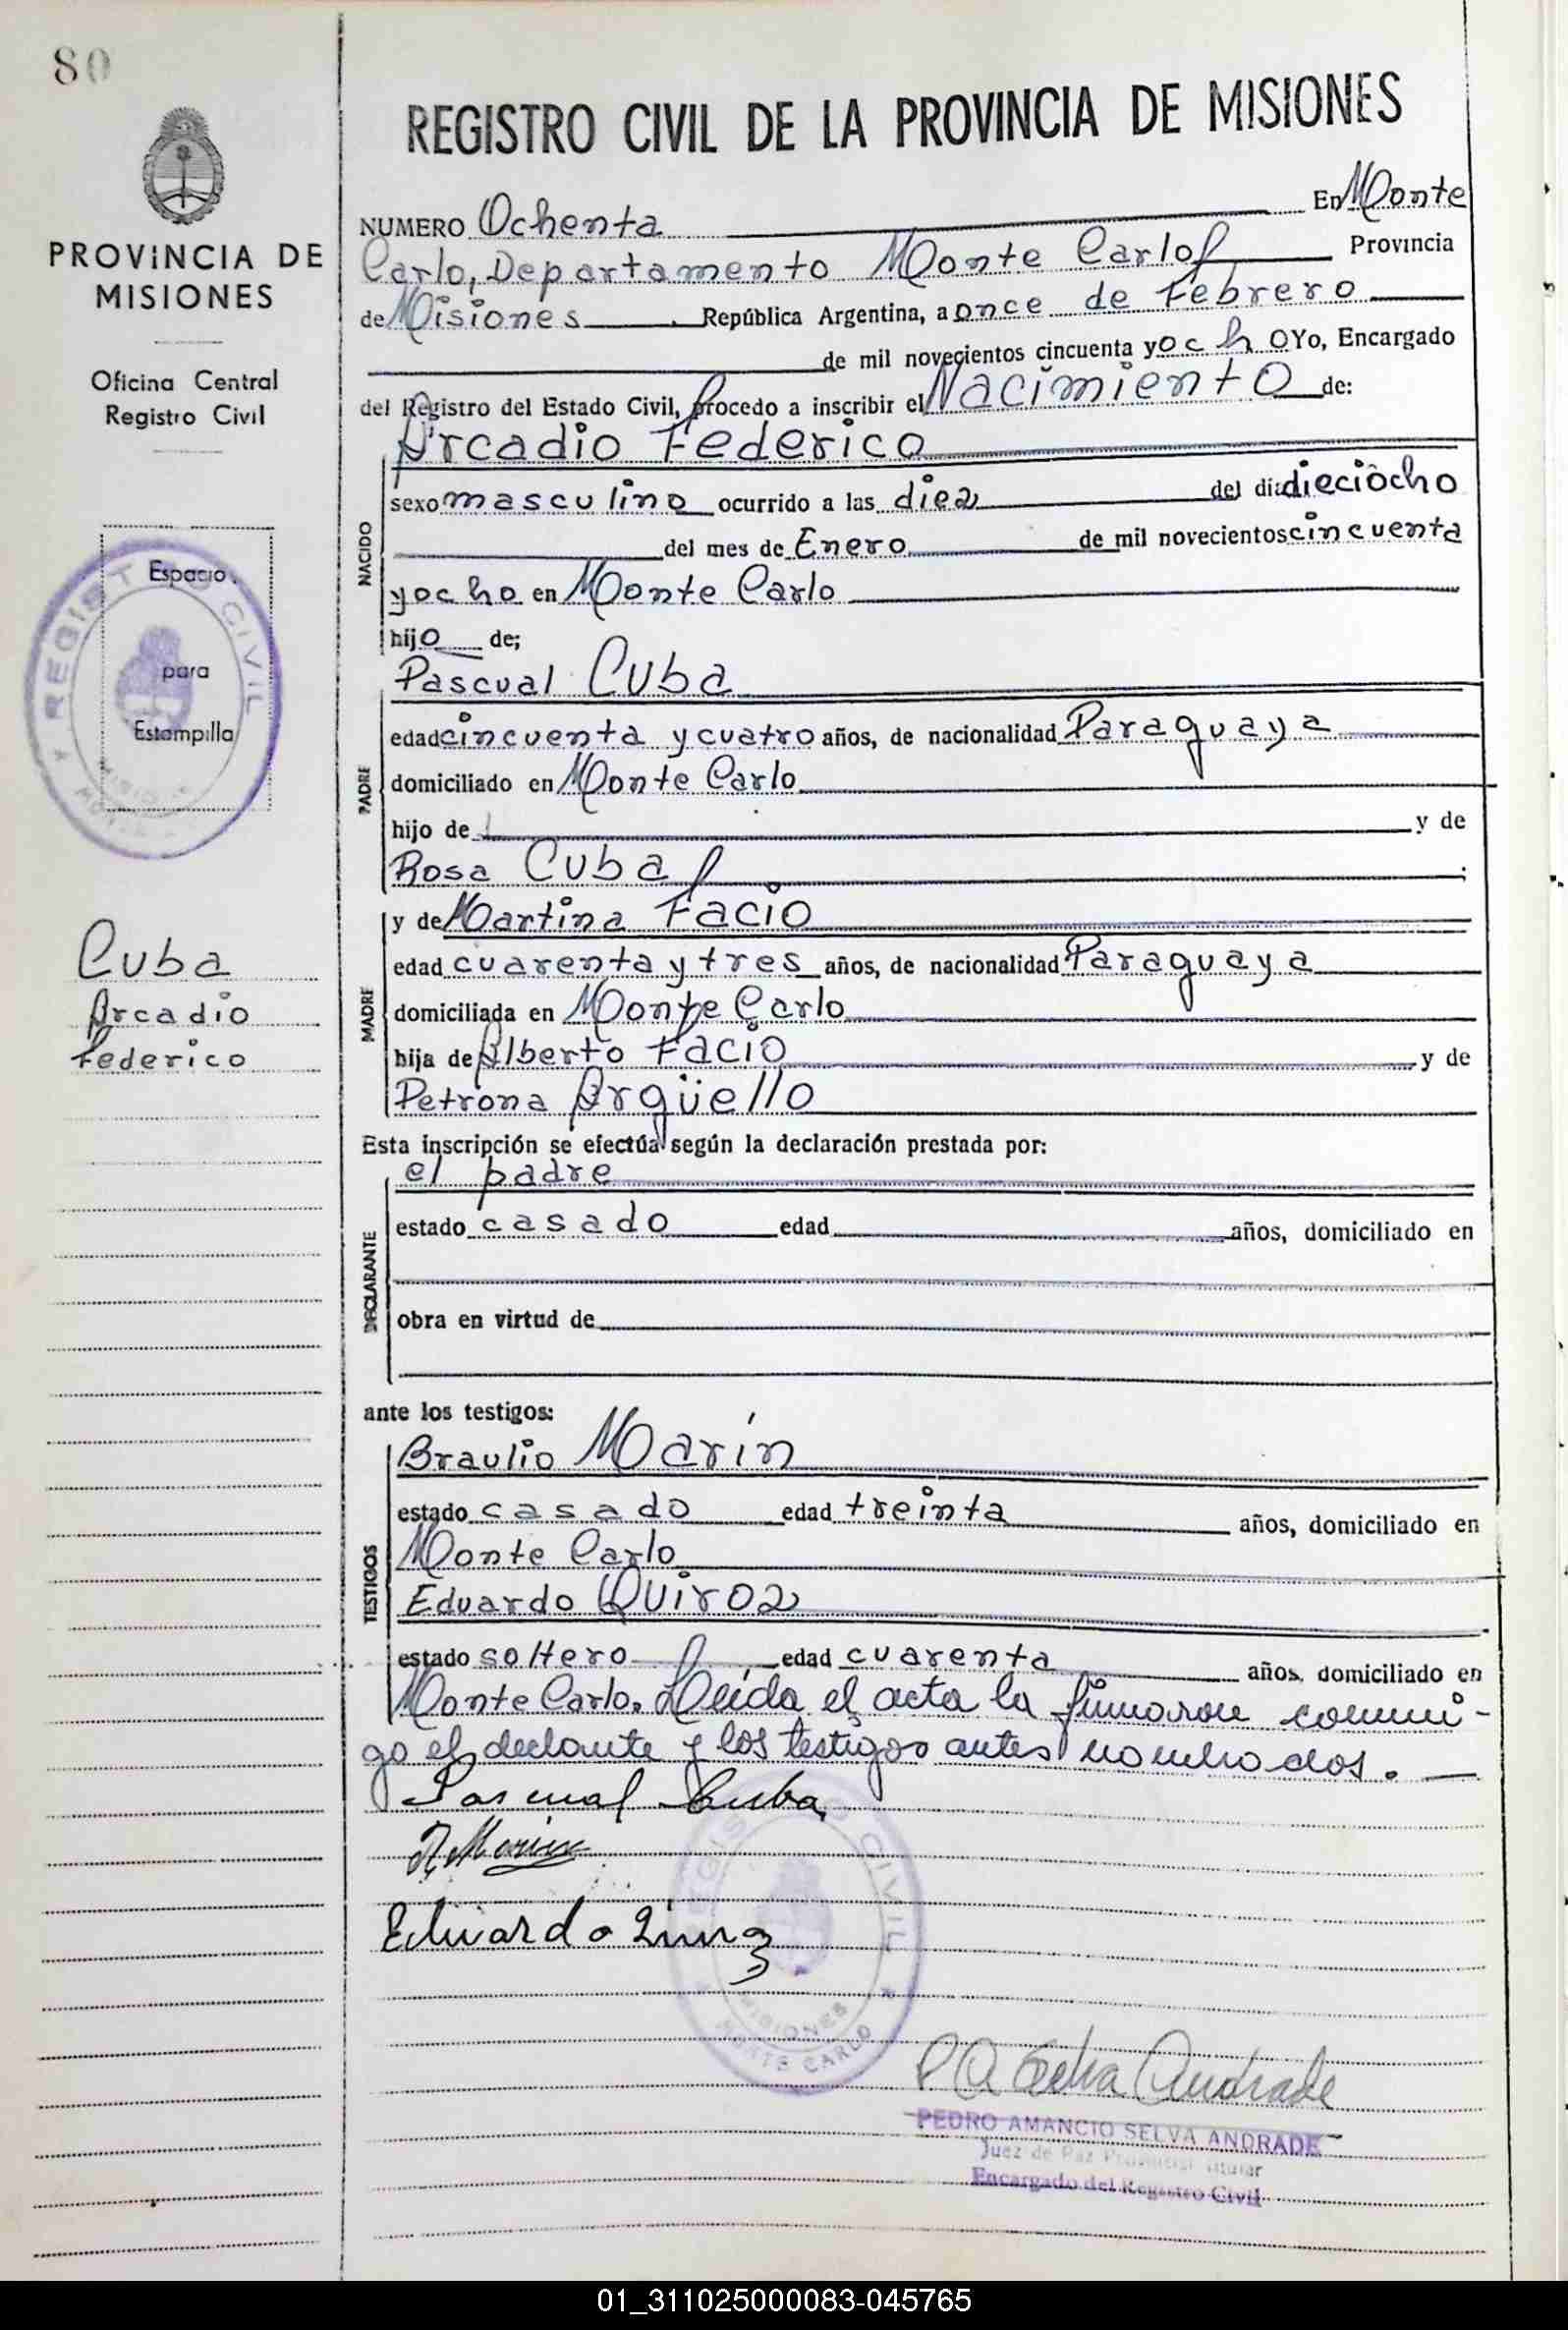 80
PROVINCIA DE
MISIONES
Oficina Central
Registro Civil
Espacio
para
Estampilla
REGISTRO CIVIL
Cuba
Arcadio
Federico
REGISTRO CIVIL DE LA PROVINCIA DE MISIONES
NUMERO Ochenta En Monte
Carlo, Departamento Monte Carlo Provincia
de Misiones República Argentina, a once de Febrero
de mil novecientos cincuenta y ocho Yo, Encargado
del Registro del Estado Civil, procedo a inscribir el Nacimiento de:
Arcadio Federico
NACIDO
sexo masculino ocurrido a las diez del día dieciocho
del mes de Enero de mil novecientos cincuenta
y ocho en Monte Carlo
hijo de;
Pascual Cuba
PADRE
edad cincuenta y cuatro años, de nacionalidad Paraguaya
domiciliado en Monte Carlo
hijo de y de
Rosa Cuba
y de Martina Facio
MADRE
edad cuarenta y tres años, de nacionalidad Paraguaya
domiciliada en Monte Carlo
hija de Alberto Facio y de
Petrona Argüello
Esta inscripción se efectúa según la declaración prestada por:
el padre
DECLARANTE
estado casado edad años, domiciliado en
obra en virtud de
ante los testigos:
Braulio Marín
TESTIGOS
estado casado edad treinta años, domiciliado en
Monte Carlo
Eduardo Quiroz
estado soltero edad cuarenta años, domiciliado en
Monte Carlo. Leída el acta la firmaron conmi-
go el declante y los testigos antes nombrados.
Pascual Cuba
Eduardo Quiroz
REGISTRO CIVIL
MISIONES
MONTE CARLO
P A Selva Andrade
PEDRO AMANCIO SELVA ANDRADE
Juez de Paz Provincial Titular
Encargado del Registro Civil
01_311025000083-045765